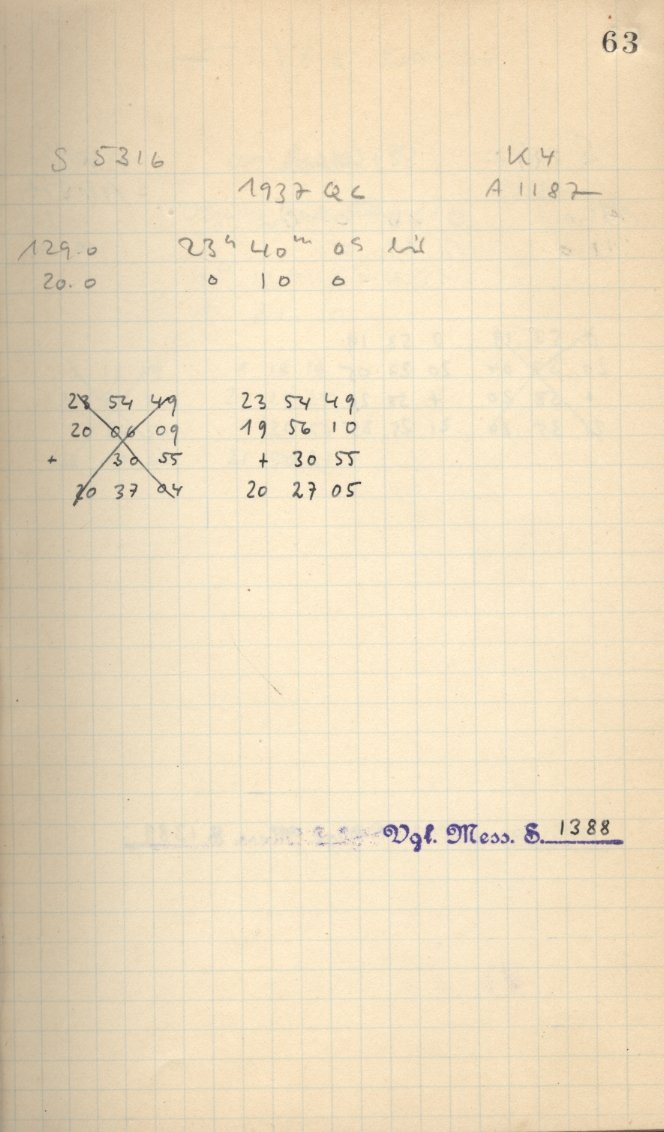 63
S 5316 K4
1937 QC A 1187
129.0 23h 40m 0s bis
20.0 0 10 0
23 54 49 23 54 49
20 06 09 19 56 10
+ 30 55 + 30 55
20 37 04 20 27 05
Vgl. Mess. S. 1388